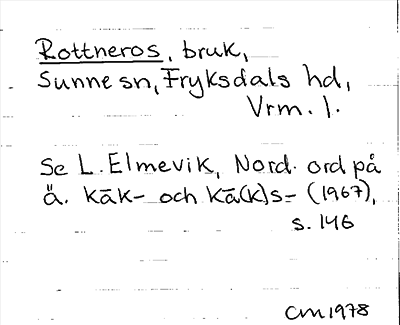 Rottneros, bruk,
Sunne sn, Fryksdals hd,
Vrm. l.
Se L. Elmevik, Nord. ord på
ä. kāk- och kā(k)s- (1967),
s. 146
CM1978